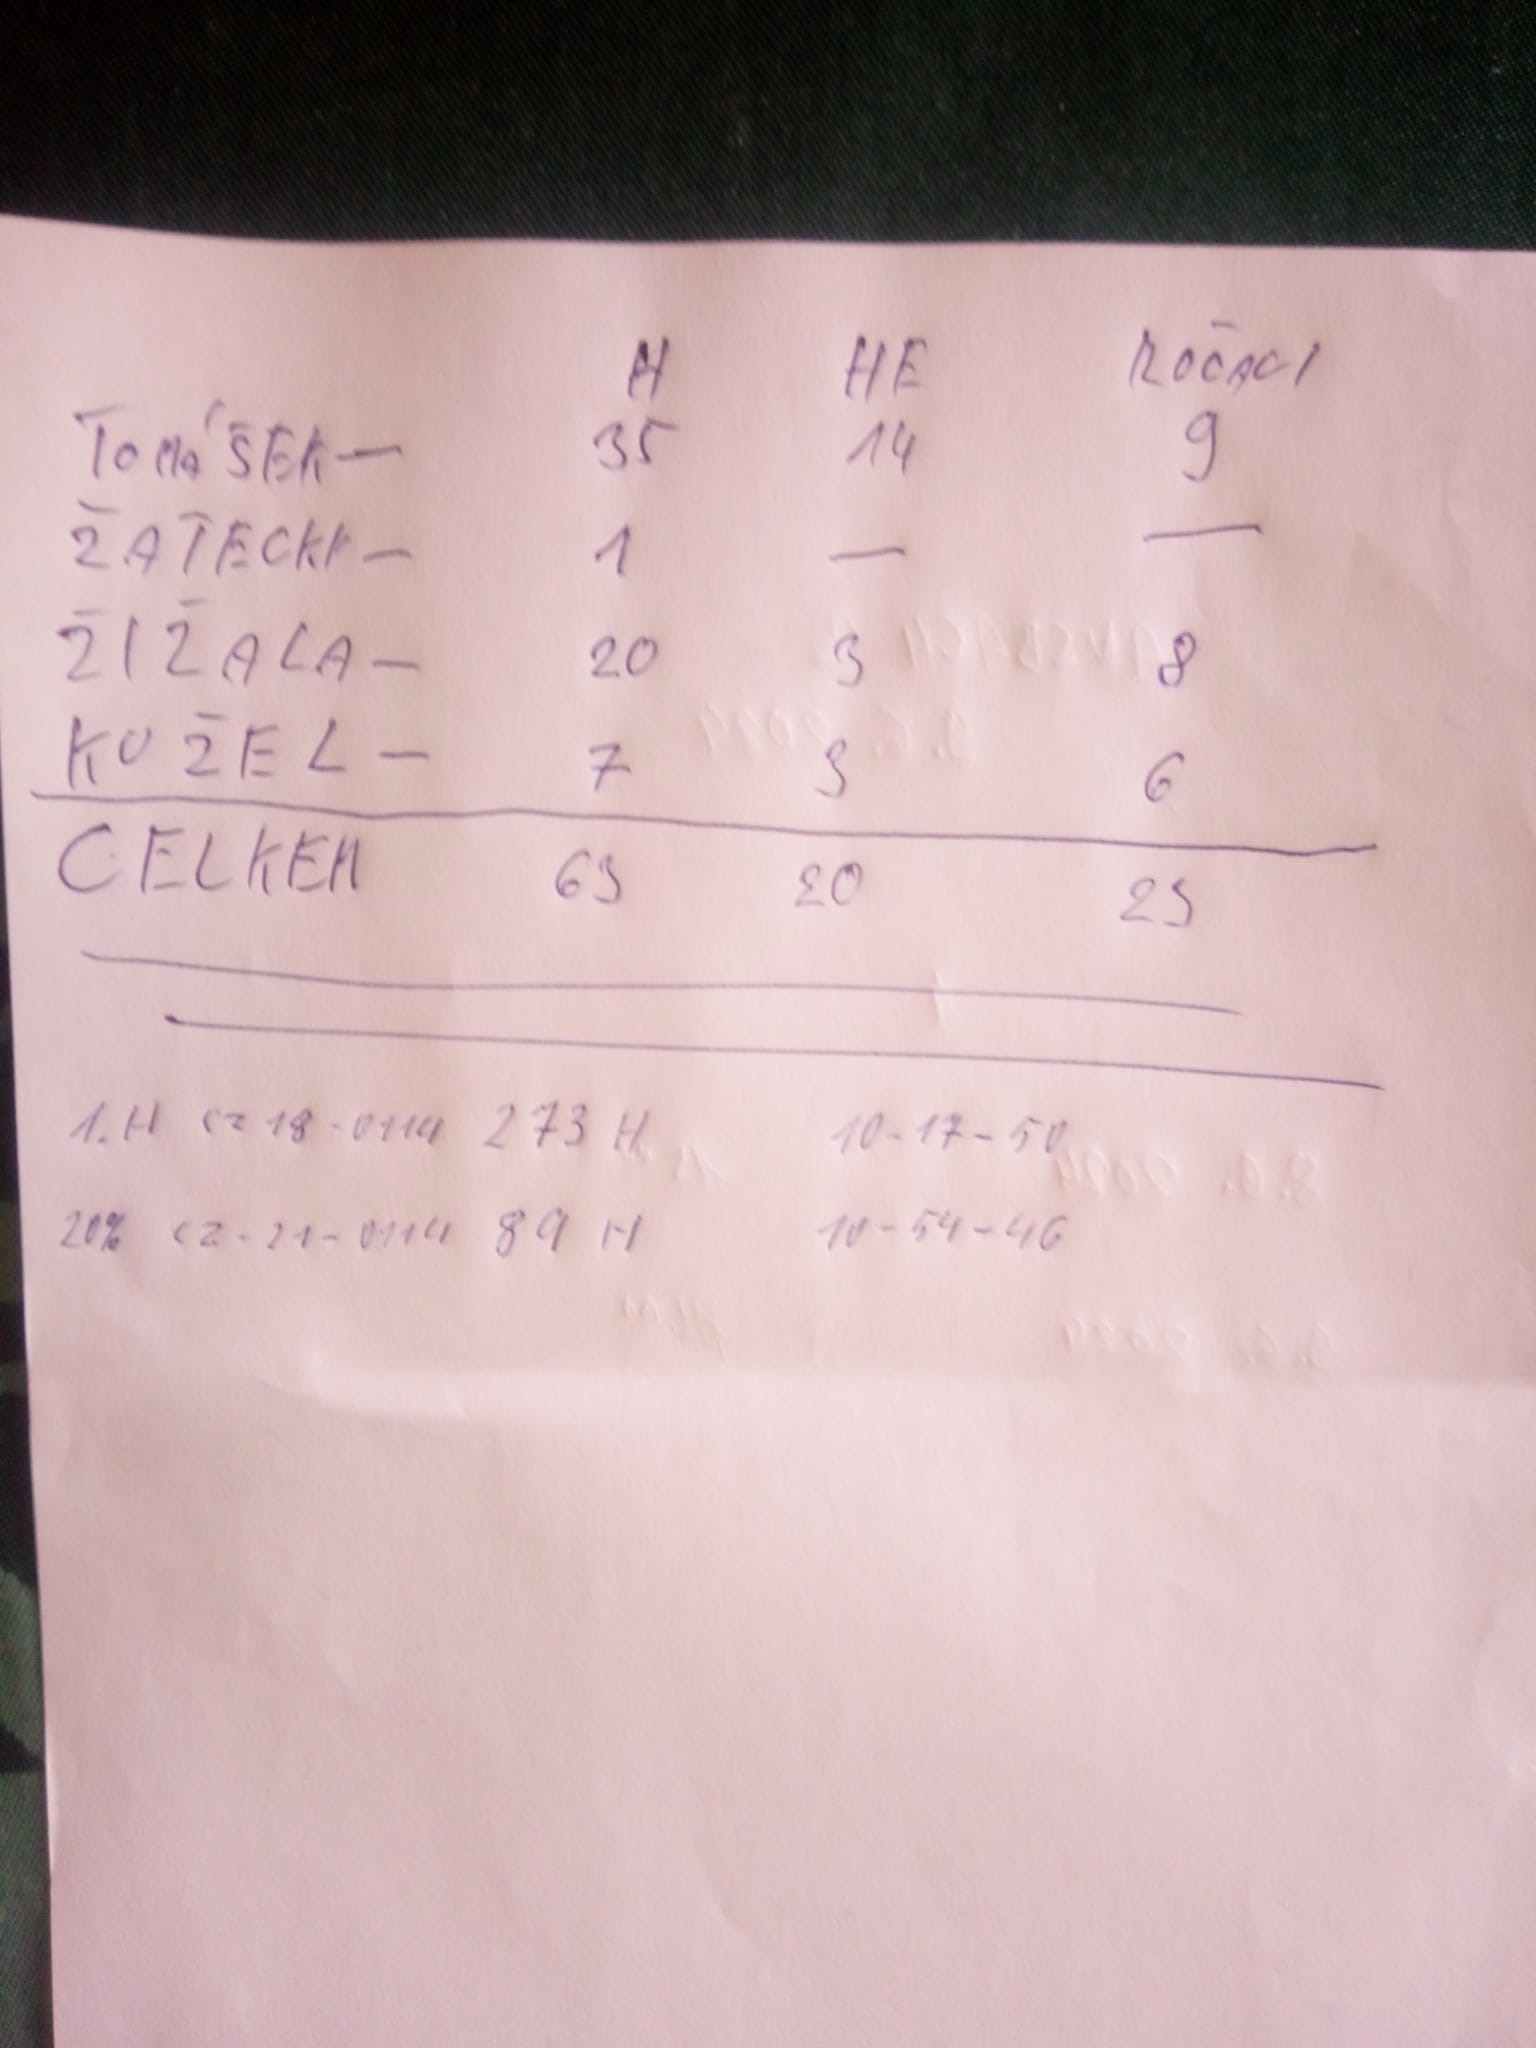 H HE ROČÁCI
TOMÁŠEK — 35 14 9
ŽATECKÝ — 1 — —
ŽIŽALA — 20 3 8
KOŽEL — 7 3 6
CELKEM 63 20 23
1. H CZ 18-0114 273 H 10-17-50
20% CZ-21-0114 89 H 10-54-46